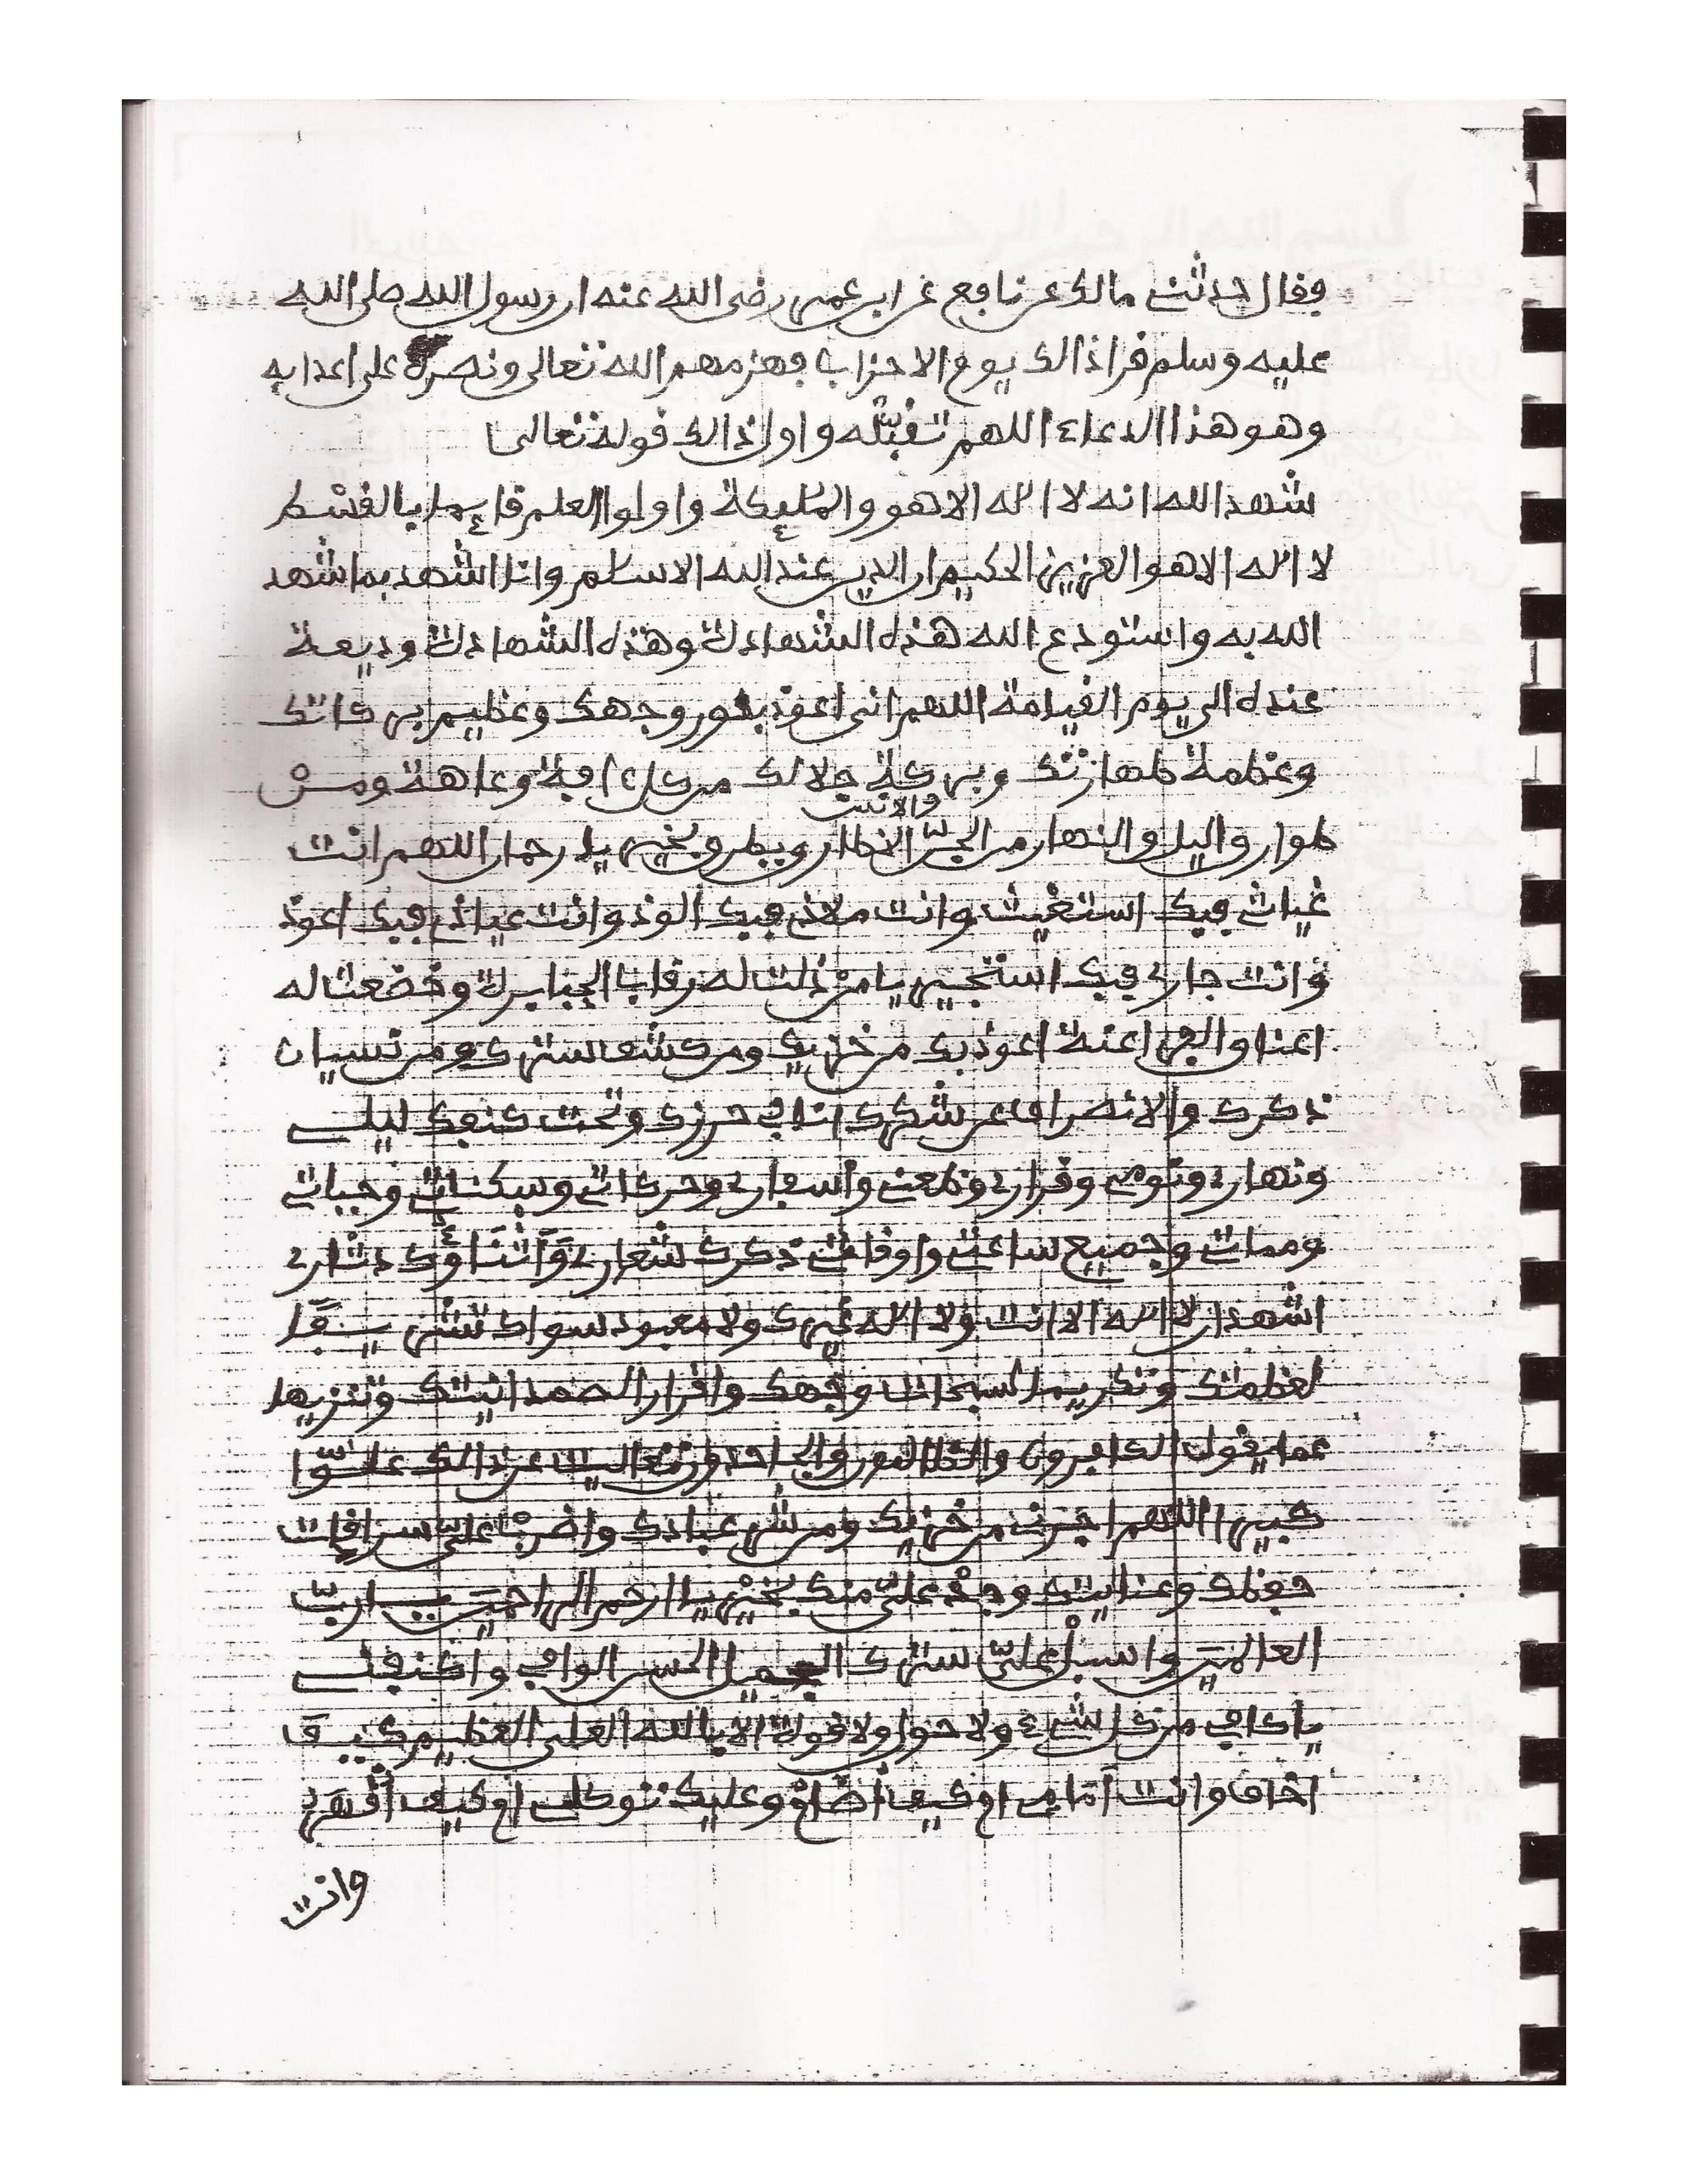 فقال حدثنى مالك عن نافع عن ابن عمر رضى الله عنه ان رسول الله صلى الله
عليه وسلم قرا ذالك يوم الاحزاب فهزمهم الله تعالى ونصره على اعدايه
وهو هذا الدعاء اللهم تقبّله واول ذالك قوله تعالى
شهد الله انه لا اله الاهو والمليكة واولوا العلم قايما بالقسط
لا اله الاهو العزيز الحكيم ان الدين عند الله الاسلم وانا اشهد بما شهد
الله به واستودع الله هذه الشهادة وهذه الشهادة وديعة
عنده الى يوم القيامة اللهم انى اعوذ بنور وجهك وعظيم بركاتك
وعظمة طهارتك وبركة جلالك من كل افة وعاهة ومن
طوارق اليل والنهار من الجنّ والانس الا طارق يطرق بخير يا رحمان اللهم انت
غياثى فبك استغيث وانت ملاذى فبك الوذ وانت عياذى فبك اعوذ
وانت جارى فبك استجير يا من ذلت له رقاب الجبابرة وخضعت له
اعناق الفراعنة اعوذ بك من خزيك ومن كشف سترك ومن نسيان
ذكرك والانصراف عن شكرك انا فى حرزك وتحت كنفك ليلى
ونهارى ونومى وقرارى وظعنى واسفارى وحركاتى وسكناتى وحياتى
ومماتى وجميع ساعتى واوقاتى ذكرك شعارى وَثناؤك دثارى
اشهد ان لا اله الا انت ولا اله غيرك ولا معبود سواك تشريفا
لعظمتك وتكريما لسبحات وجهك واقرارا لصمدانيتك وتنزيها
عما يقول الكافرون والظالمون والجاحدون تعاليت عن ذالك علوّا
كبيرا اللهم اجرنى من خزيك ومن شر عبادك واضرب علىّ سرادقات
حفظك وعنايتك وجد علىّ منك بخير يا ارحم الراحمين يارب
العالمين واسبل علىّ سترك الجميل الحسن الوافى واكنفنى
ياكافى من كل شىء ولا حول ولا قوة الا بالله العلى العظيم كيف
اخاف وانت اَمَامى ام كيف اضام وعليك توكلى ام كيف اقهر
وانت